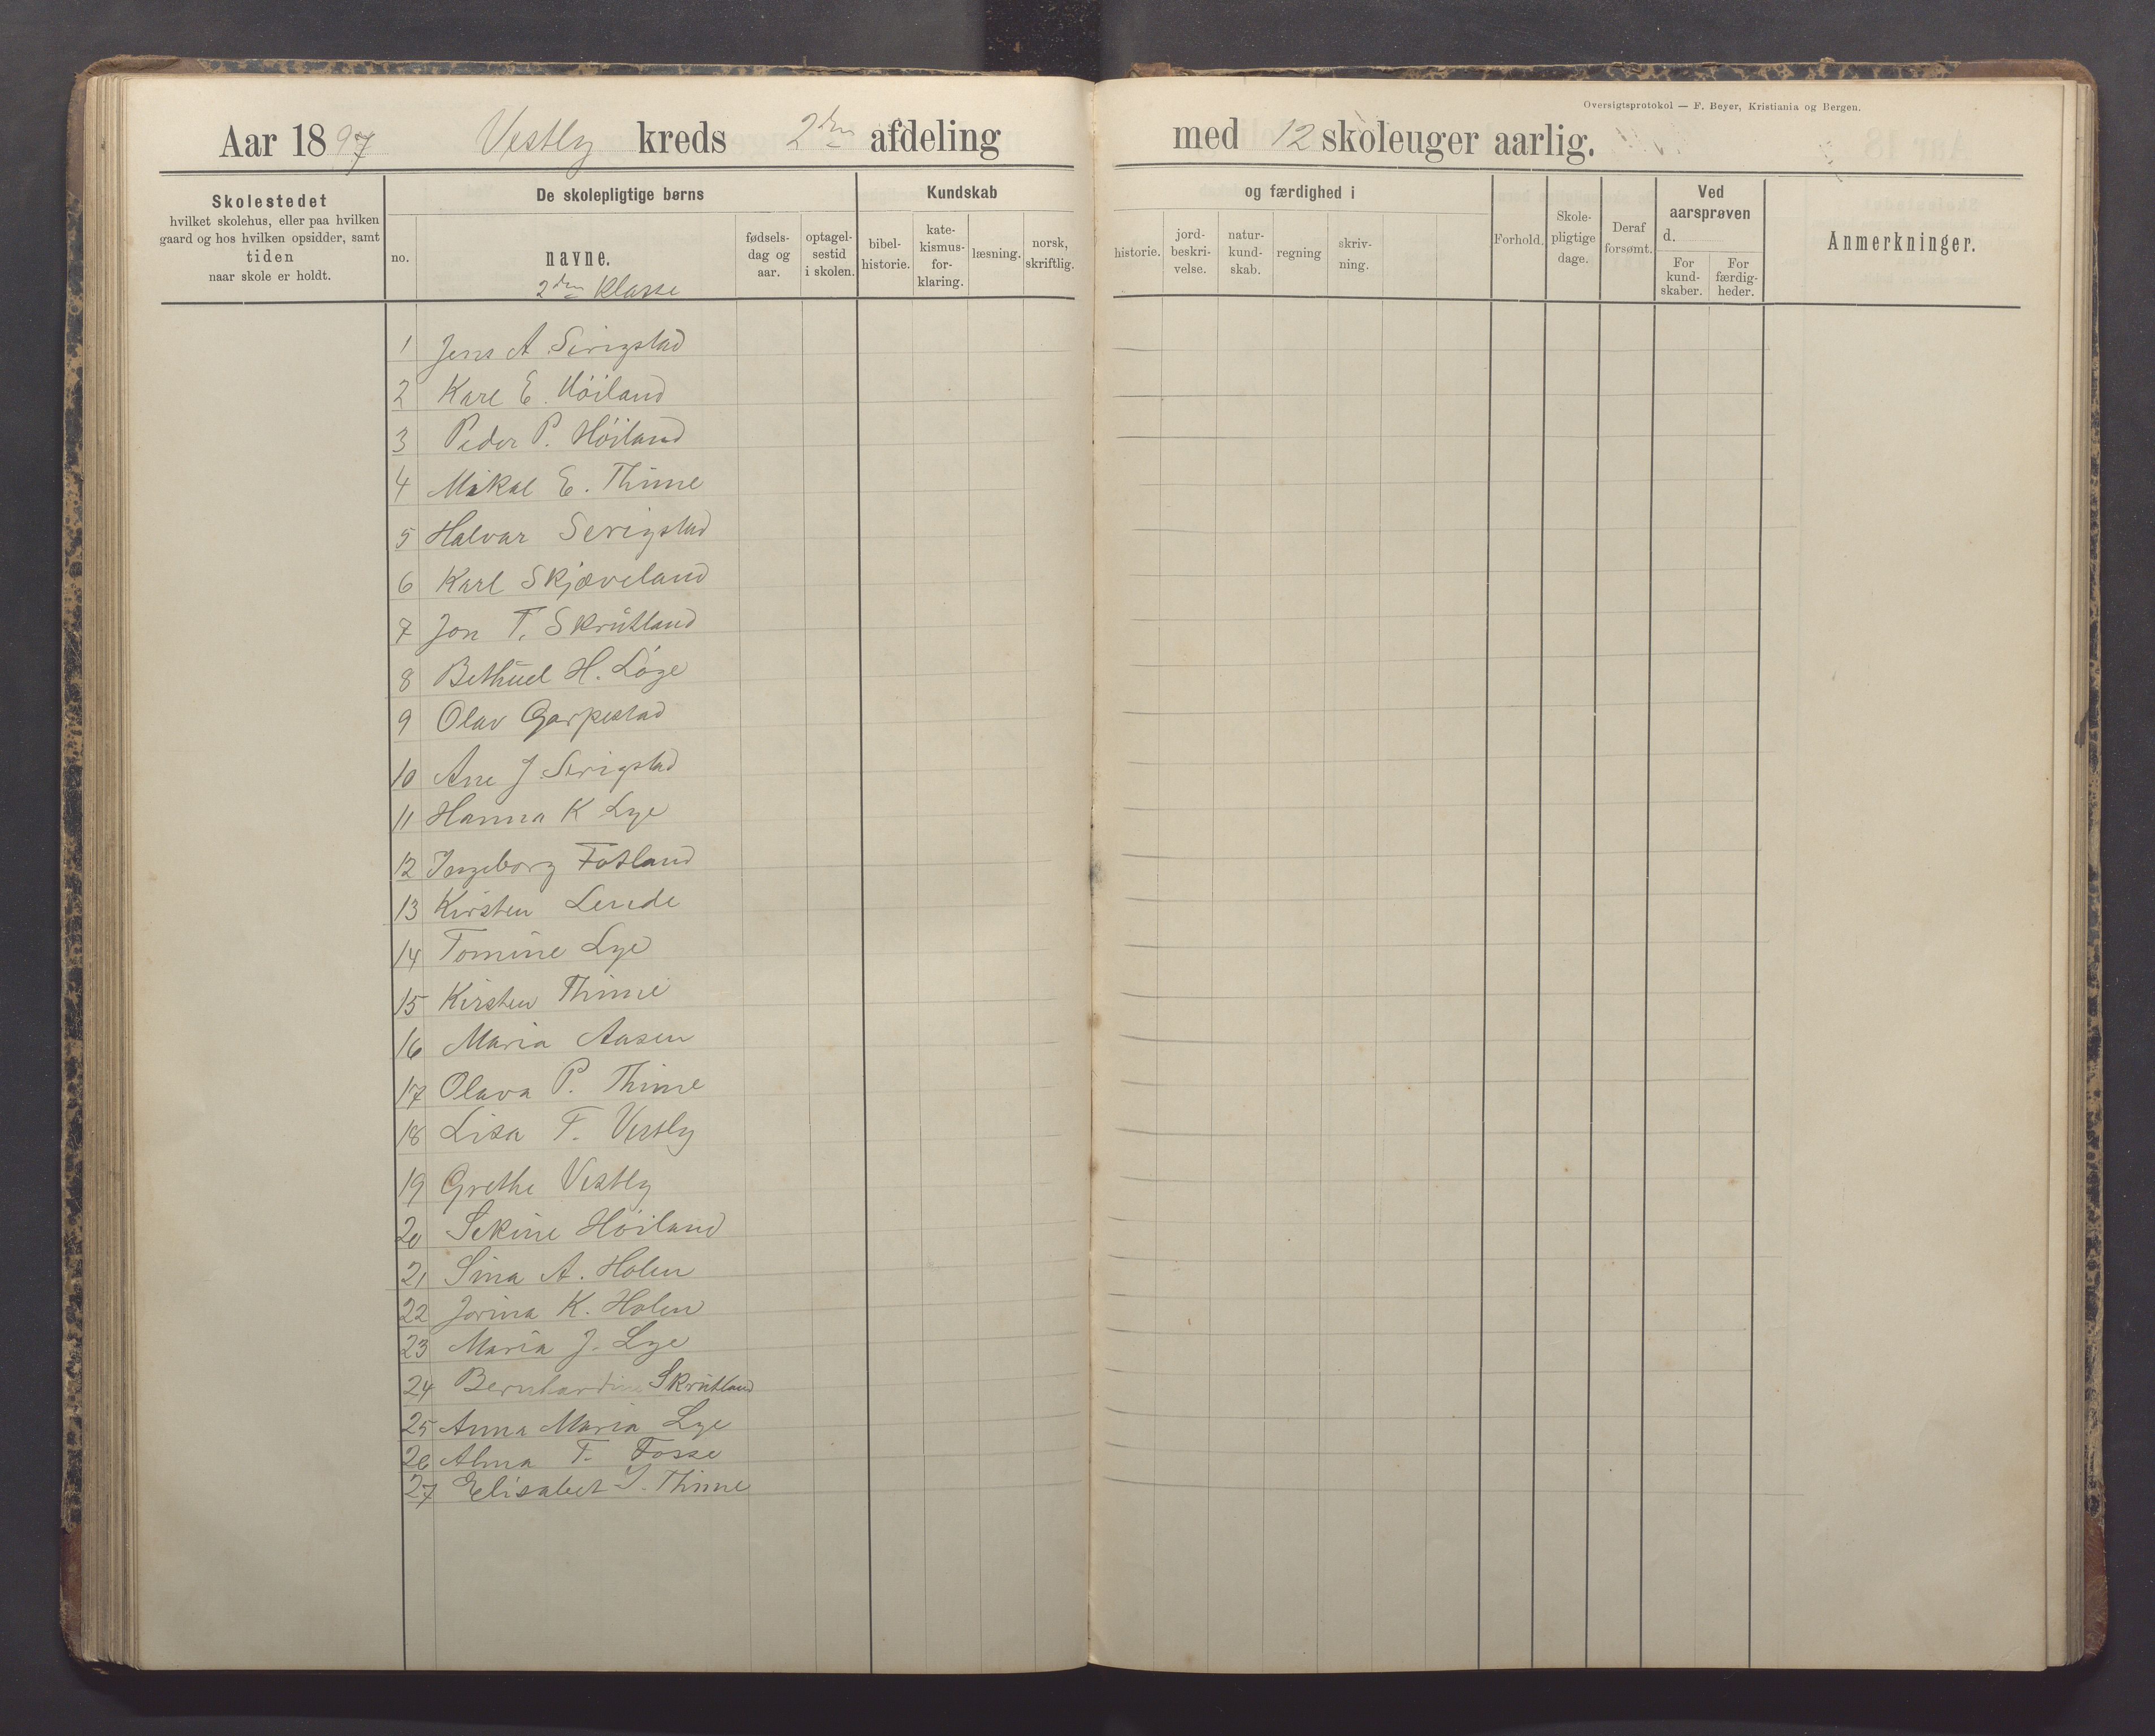 Oversigtsprotokol — F. Beyer, Kristiania og Bergen.
Aar 1897 Vestly kreds 2den afdeling med 12 skoleuger aarlig.
Skolestedet
hvilket skolehus, eller paa hvilken
gaard og hos hvilken opsidder, samt
tiden
naar skole er holdt.
De skolepligtige børns
no.
navne.
2den Klasse
fødsels-
dag og
aar.
optagel-
sestid
i skolen.
Kundskab
bibel-
historie.
kate-
kismus-
for-
klaring.
læsning.
norsk,
skriftlig.
og færdighed i
historie.
jord-
beskri-
velse.
natur-
kund-
skab.
regning
skriv-
ning.
Forhold.
Skole-
pligtige
dage.
Deraf
forsømt.
Ved
aarsprøven
d.
For
kund-
skaber.
For
færdig-
heder.
Anmerkninger.
1 Jens A Serigstad
2 Karl E. Höiland
3 Peder P. Höiland
4 Mikal E. Thime
5 Halvar Serigstad
6 Karl Skjæveland
7 Jon T. Skrŭtland
8 Bethŭel H. Löge
9 Olav Garpestad
10 Ane J. Serigstad
11 Hanna K Lye
12 Ingeborg Fotland
13 Kirsten Lende
14 Tomine Lye
15 Kirsten Thime
16 Maria Aasen
17 Olava P. Thime
18 Lisa T. Vestly
19 Grethe Vestly
20 Sekine Höiland
21 Sina A. Holen
22 Jorina K. Holen
23 Maria J. Lye
24 Bernhardine Skrŭtland
25 Anna Maria Lye
26 Alma T. Fosse
27 Elisabet I. Thime